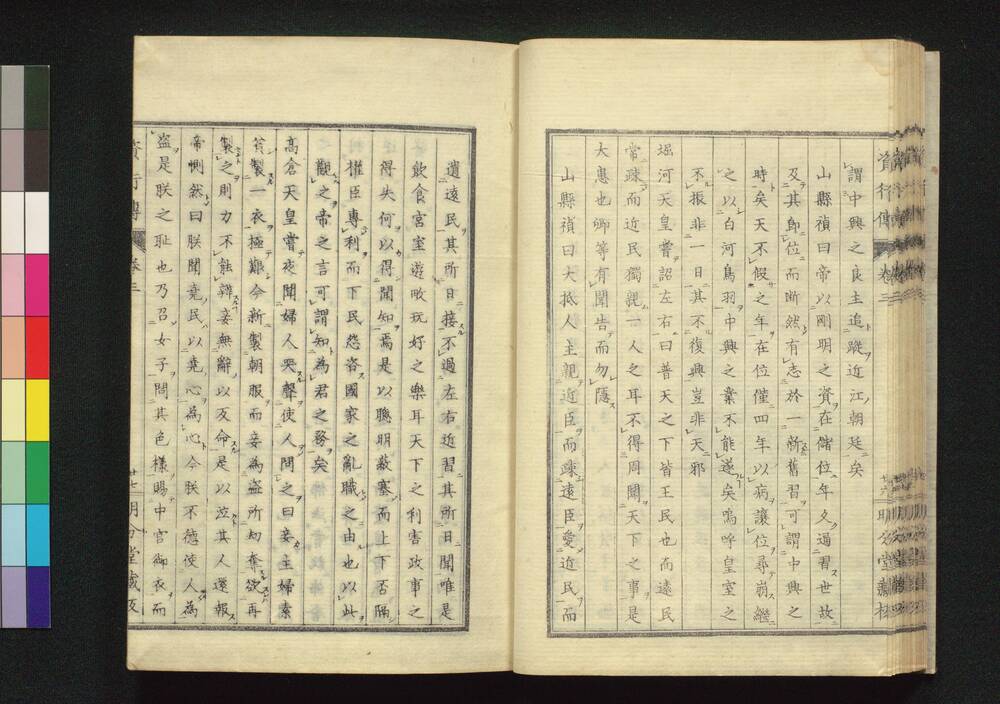 謂中興之良主追蹤近江朝廷矣
山縣禎曰帝以剛明之資在儲位年久通習世故
及其即位而断然有志於一新舊習可謂中興之
時矣天不假之年在位僅四年以病讓位尋崩繼
之以白河鳥羽中興之業不能遂矣嗚呼皇室之
不振非一日其不復興豈非天邪
堀河天皇嘗詔左右曰普天之下皆王民也而遠民
常疎而近民獨親一人之耳不得周聞天下之事是
大患也卿等有聞告而勿隱
山縣禎曰大抵人主親近臣而疎遠臣愛近民而
遺遠民其所日接不過左右近習其所日聞唯是
飲食宮室遊畋玩好之樂耳天下之利害政事之
得失何以得聞知焉是以聰明蔽塞而上下否隔
權臣專利而下民怨咨國家之亂職之由也以此
觀之帝之言可謂知為君之務矣
高倉天皇嘗夜聞婦人哭聲使人問之曰妾主婦素
貧製一衣極艱今新製朝服而妾為盜所劫奪欲再
製之則力不能辨妾無辭以反命是以泣其人還報
帝惻然曰朕聞堯民以堯心為心今朕不德使人為
盜是朕之耻也乃召女子問其色樣賜中宮御衣而